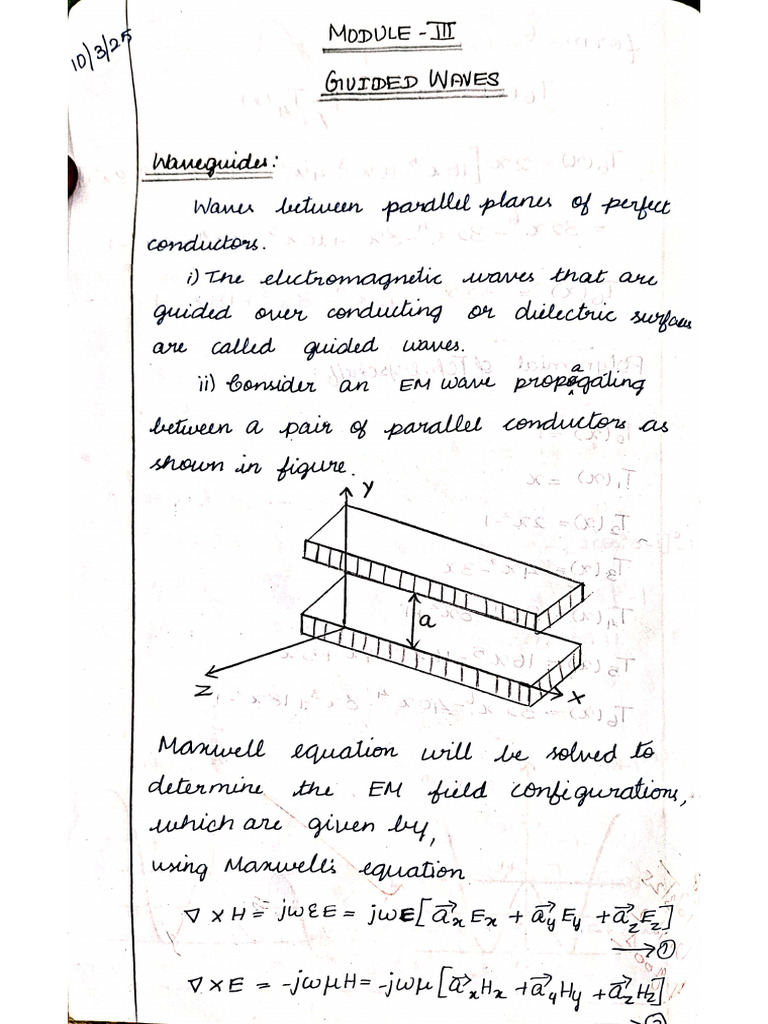 10/3/25
MODULE - III
GUIDED WAVES
Waveguides:
Waves between parallel planes of perfect
conductors.
i) The electromagnetic waves that are
guided over conducting or dielectric surfaces
are called guided waves.
ii) Consider an EM wave propagating
between a pair of parallel conductors as
shown in figure.
Y
a
Z
X
Maxwell equation will be solved to
determine the EM field configurations,
which are given by,
using Maxwell's equation
∇ × H = jωεE = jωE[a⃗xEx + a⃗yEy + a⃗zEz]
→①
∇ × E = -jωμH = -jωμ[a⃗xHx + a⃗yHy + a⃗zHz]